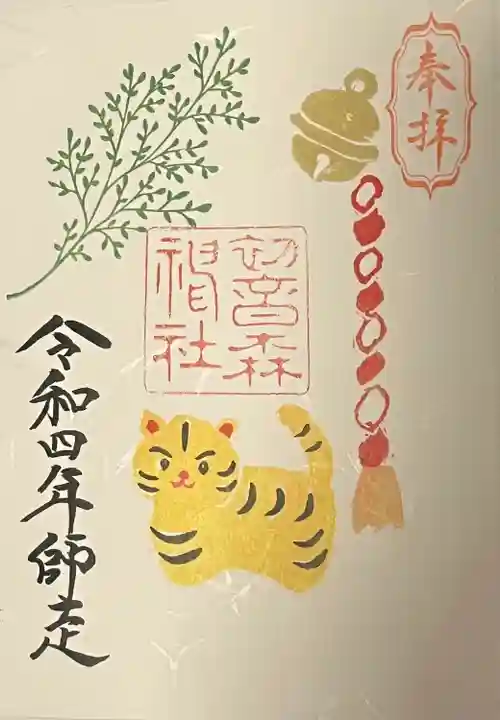 奉拝
初音森
神社
令和四年師走